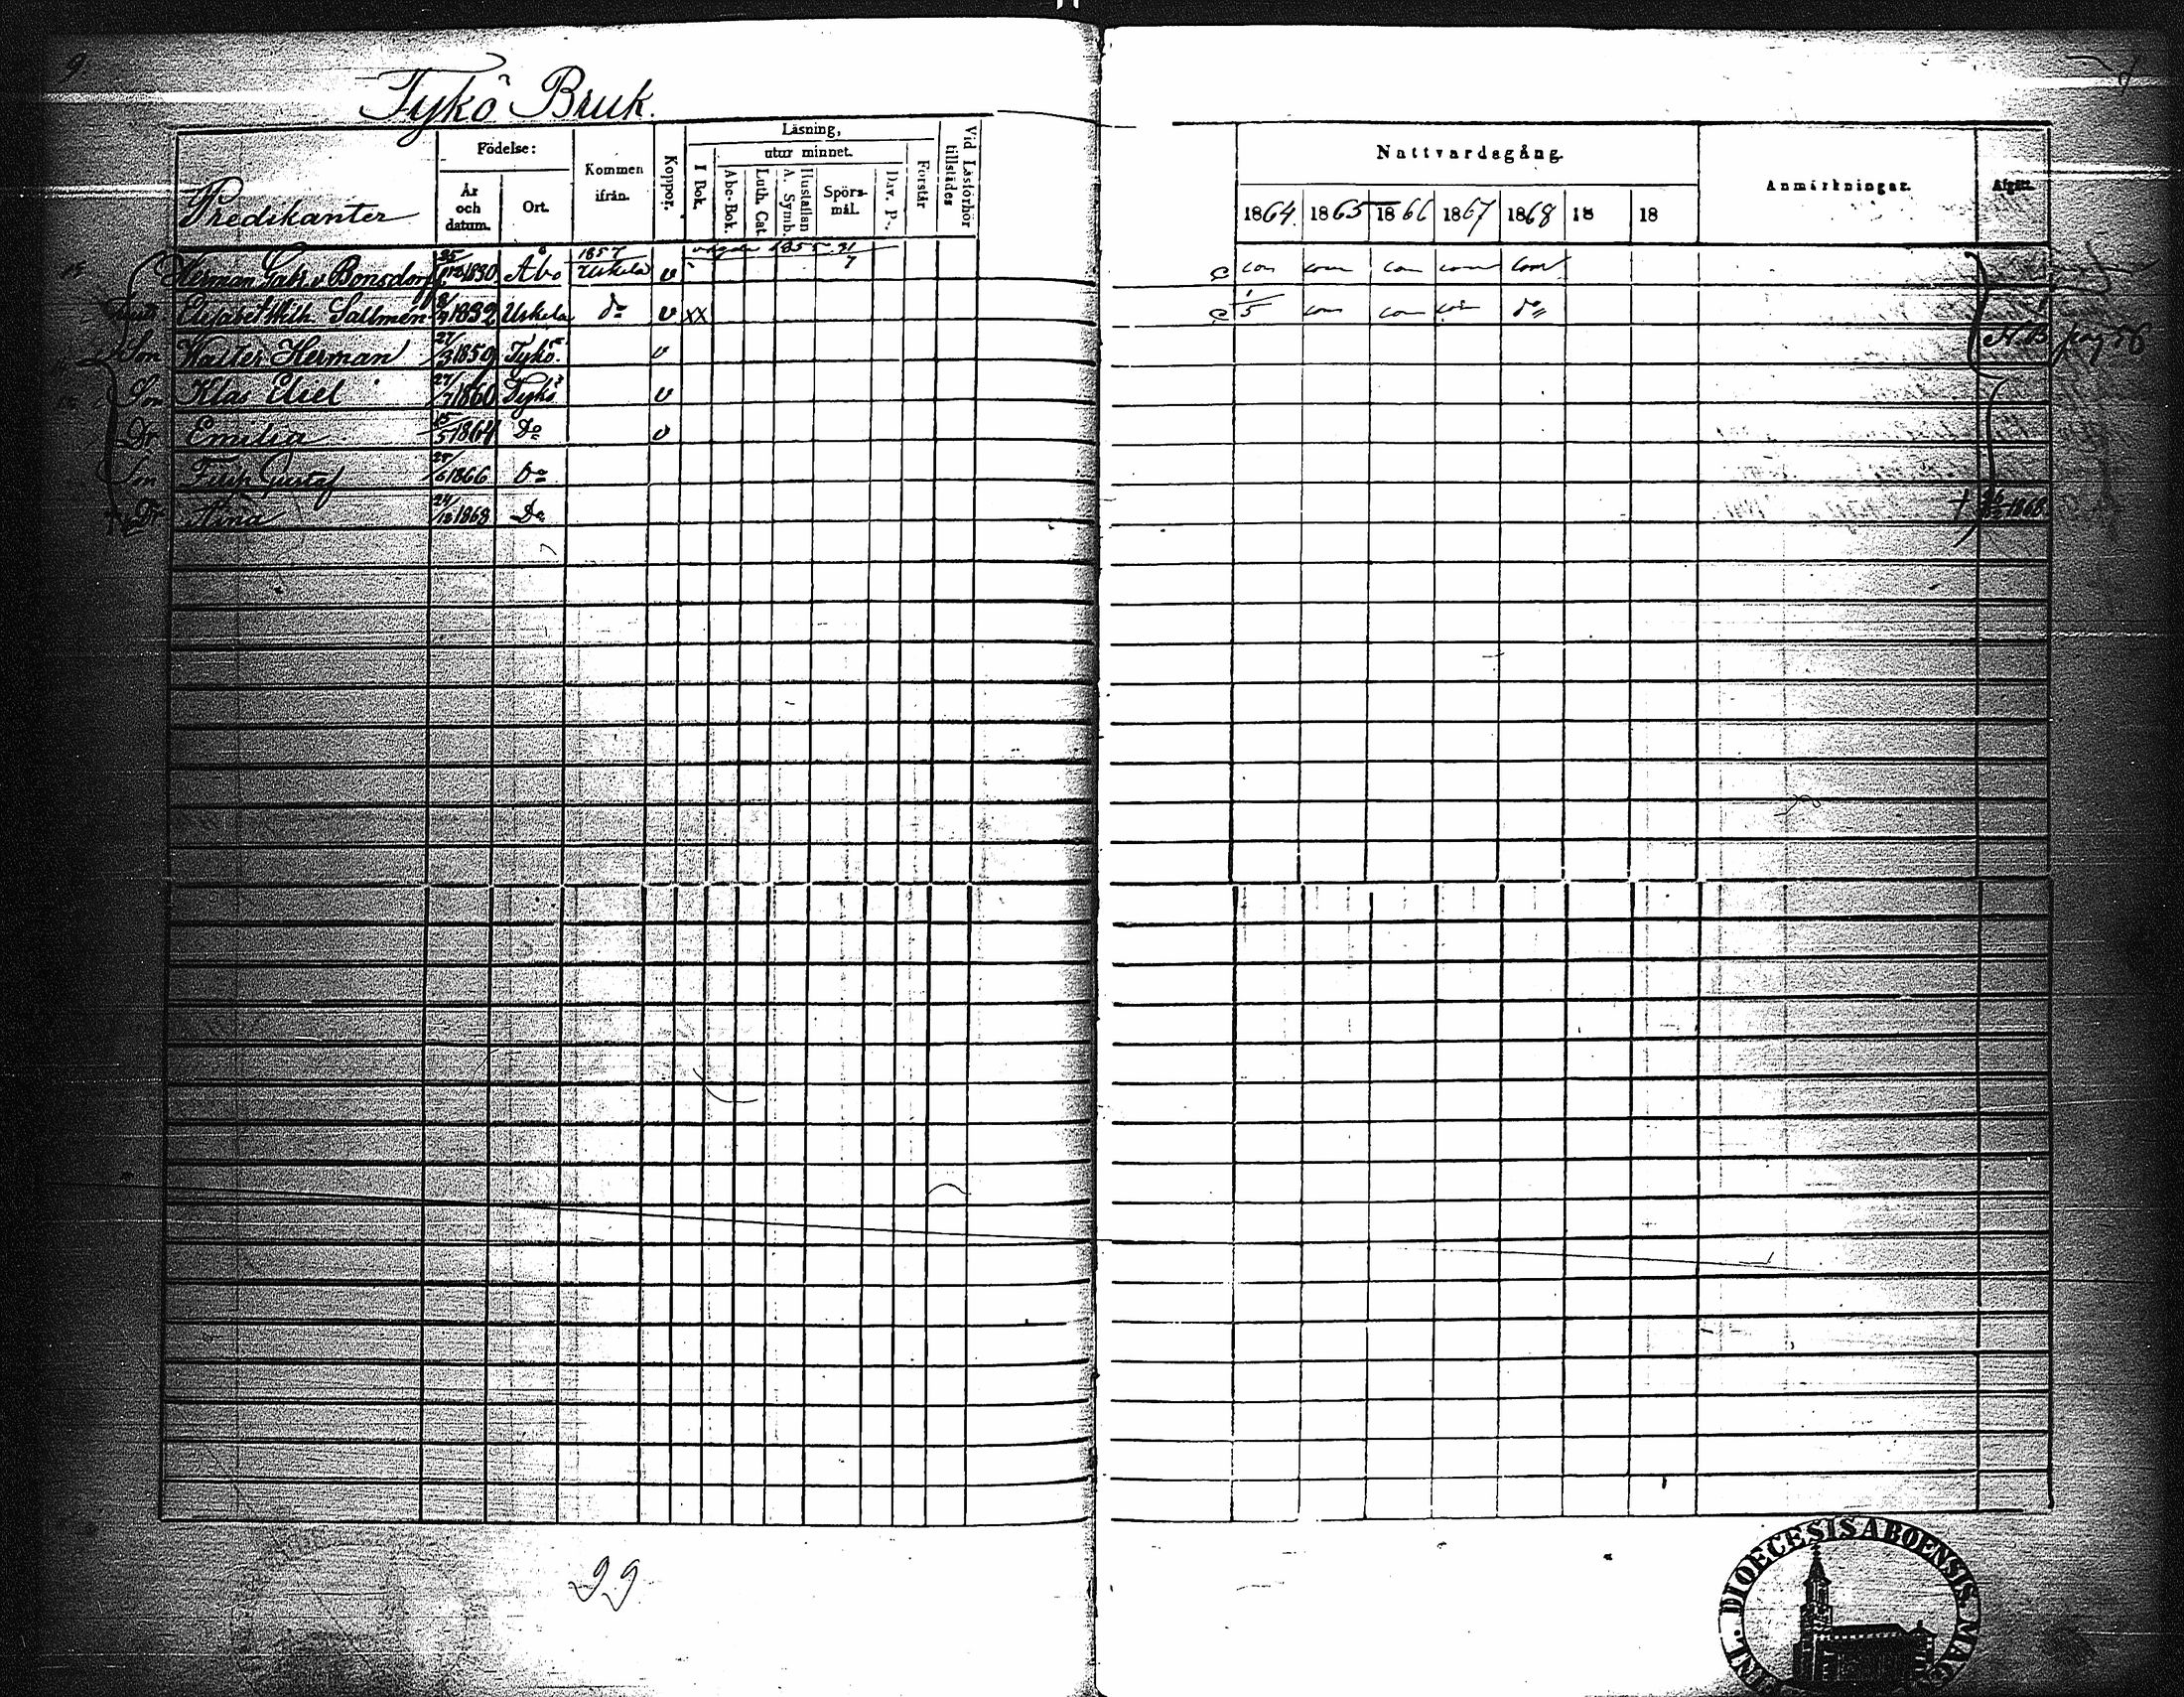 9.
Tykö Bruk.
Predikanter
Födelse:
År och datum.
Ort.
Kommen ifrån.
Koppor.
Läsning,
I Bok.
utur minnet.
Abc-Bok.
Luth. Cat.
A. Symb.
Hustaflan
Spörsmål.
Dav. P.
Förstår
Vid Läsförhör tillstädes
Nattvardsgång.
1864. 1865 1866 1867 1868 18 18
Anmärkningar.
Afgått.
Herman Gabr. v. Bonsdorff 1830 Åbo 1857 Uskela v 1855 31/7 c con com com com com
Elisabet Wilh. Sallmén 1832 Uskela do v xx c 1/5 com com com do
Son Walter Herman 27/3 1859 Tykö v N.B. pag 56
Son Klas Eliel 27/7 1860 Tykö v
Dr Emilia 15/5 1864 Do v
Son Filip Gustaf 1866 Do
† Dr Aina 24/12 1868 Do † 1868
29
DIOECESIS ABOENSIS